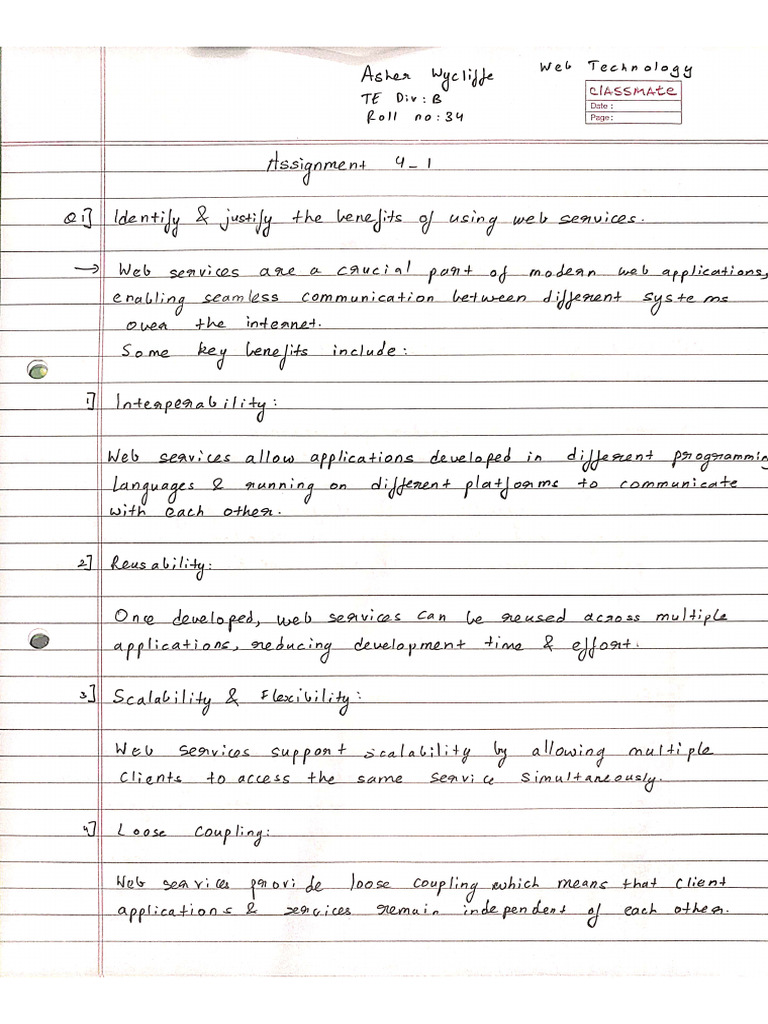 Asher Wycliffe Web Technology
TE Div: B
Roll no: 34
CLASSMATE
Date:
Page:
Assignment 4-1
Q1] Identify & justify the benefits of using web services.
→ Web services are a crucial part of modern web applications,
enabling seamless communication between different systems
over the internet.
Some key benefits include:
1] Interperability:
Web services allow applications developed in different programmin
languages & running on different platforms to communicate
with each other.
2] Reusability:
Once developed, web services can be reused across multiple
applications, reducing development time & effort.
3] Scalability & Flexibility:
Web services support scalability by allowing multiple
clients to access the same service simultaneously.
4] Loose coupling:
Web services provide loose coupling which means that client
applications & services remain independent of each other.